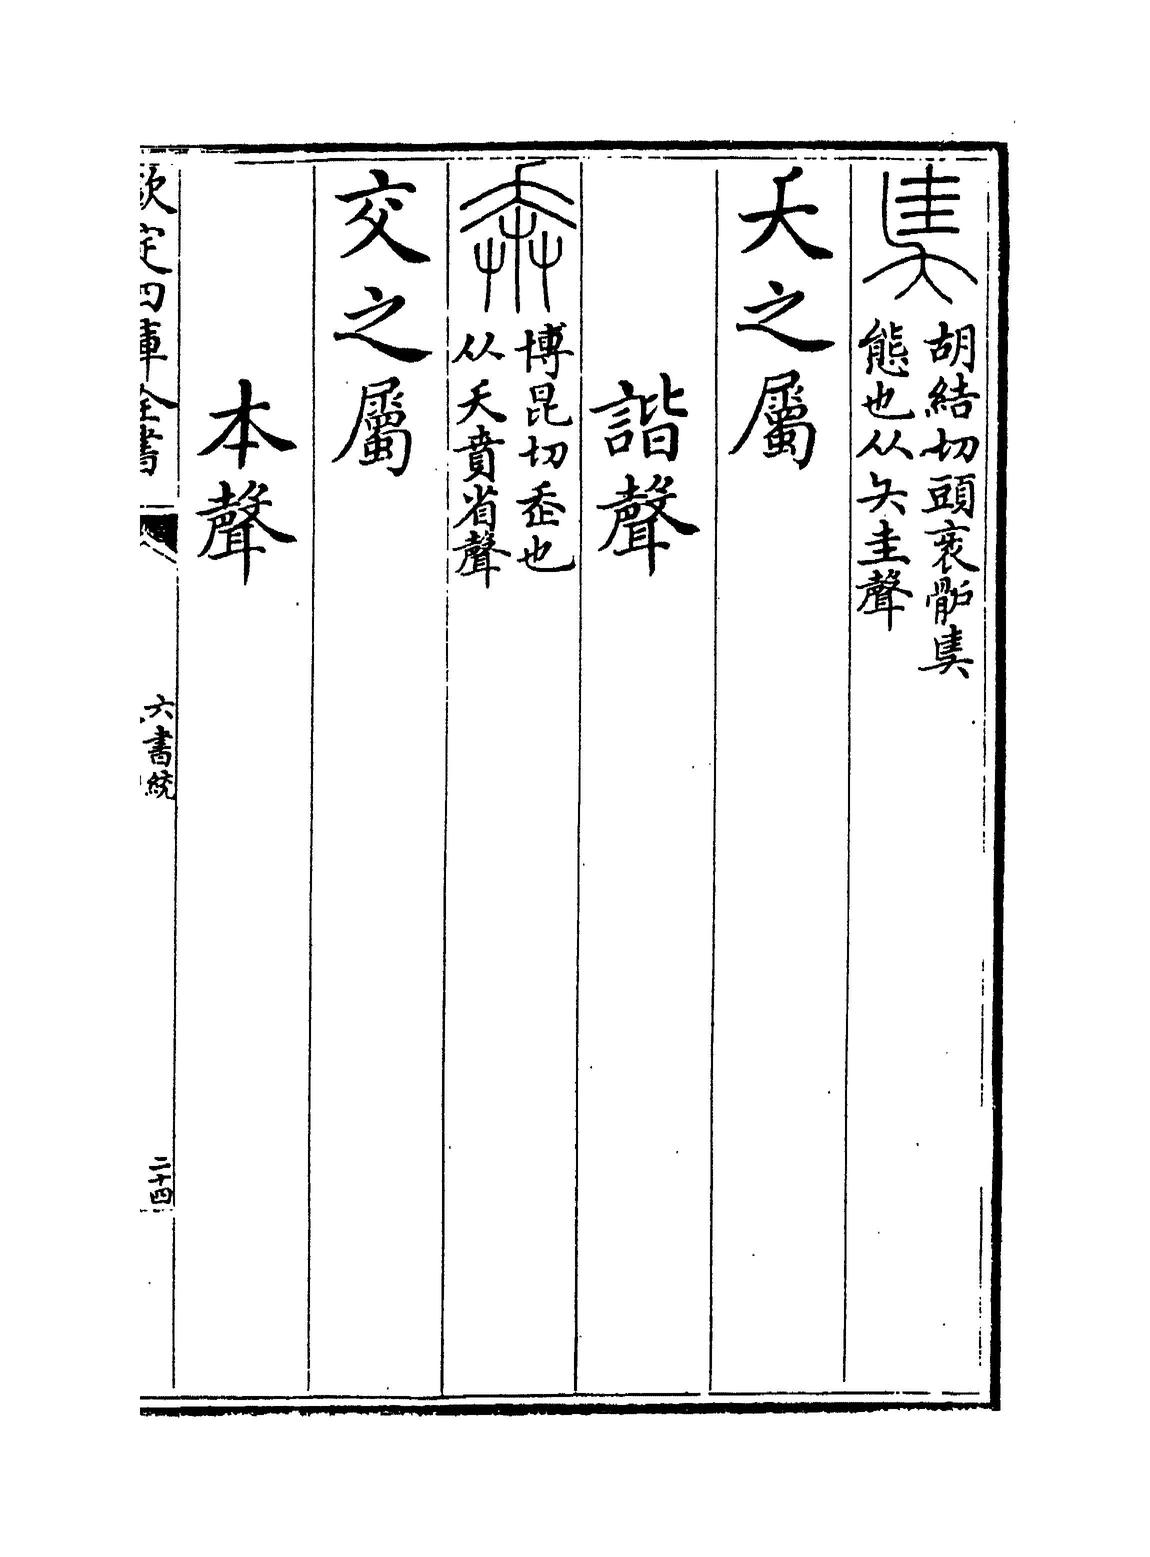 奊
胡結切頭衺骫奊
態也从夨圭聲
夭之屬
諧聲
奔
博昆切走也
从夭賁省聲
交之屬
本聲
欽定四庫全書
六書統
二十四